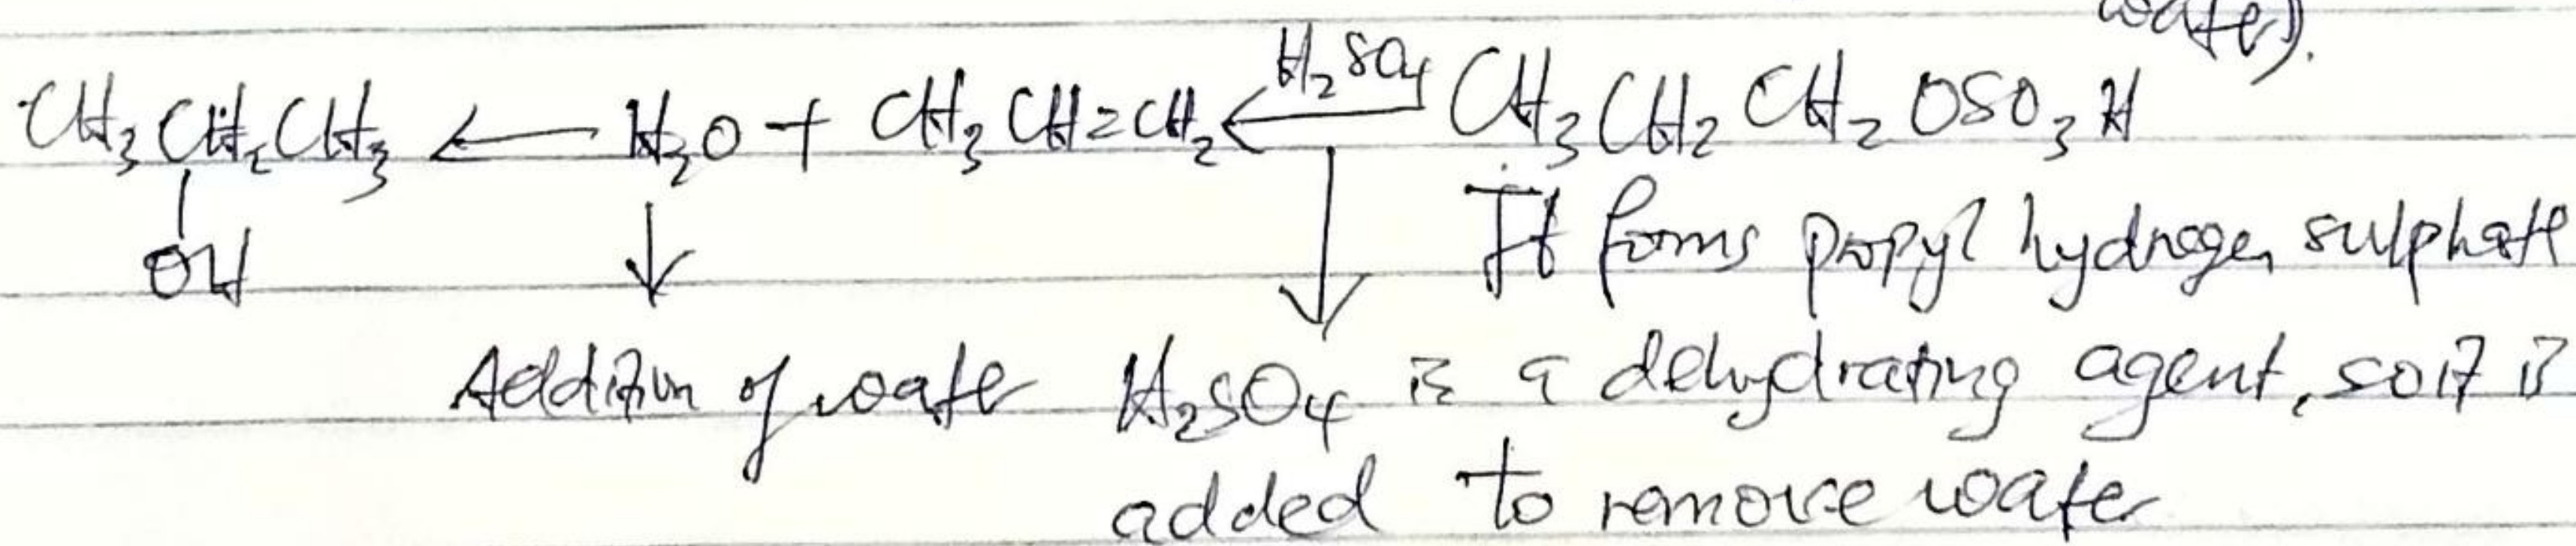 water).
CH₃CH₂CH₃ ← H₂O + CH₃CH=CH₂ ← H₂SO₄ CH₃CH₂CH₂OSO₃H
OH ↓ It forms propyl hydrogen sulphate
Addition of water H₂SO₄ is a dehydrating agent, so it is
added to remove water